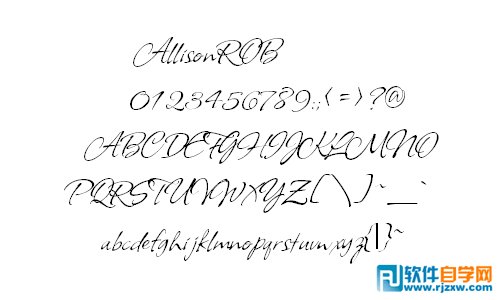 AllisonROB
0123456789:;<=>?@
ABCDEFGHIJKLMNO
PQRSTUVWXYZ[\]^_`
abcdefghijklmnopqrstuvwxyz{|}~
软件自学网
www.rjzxw.com